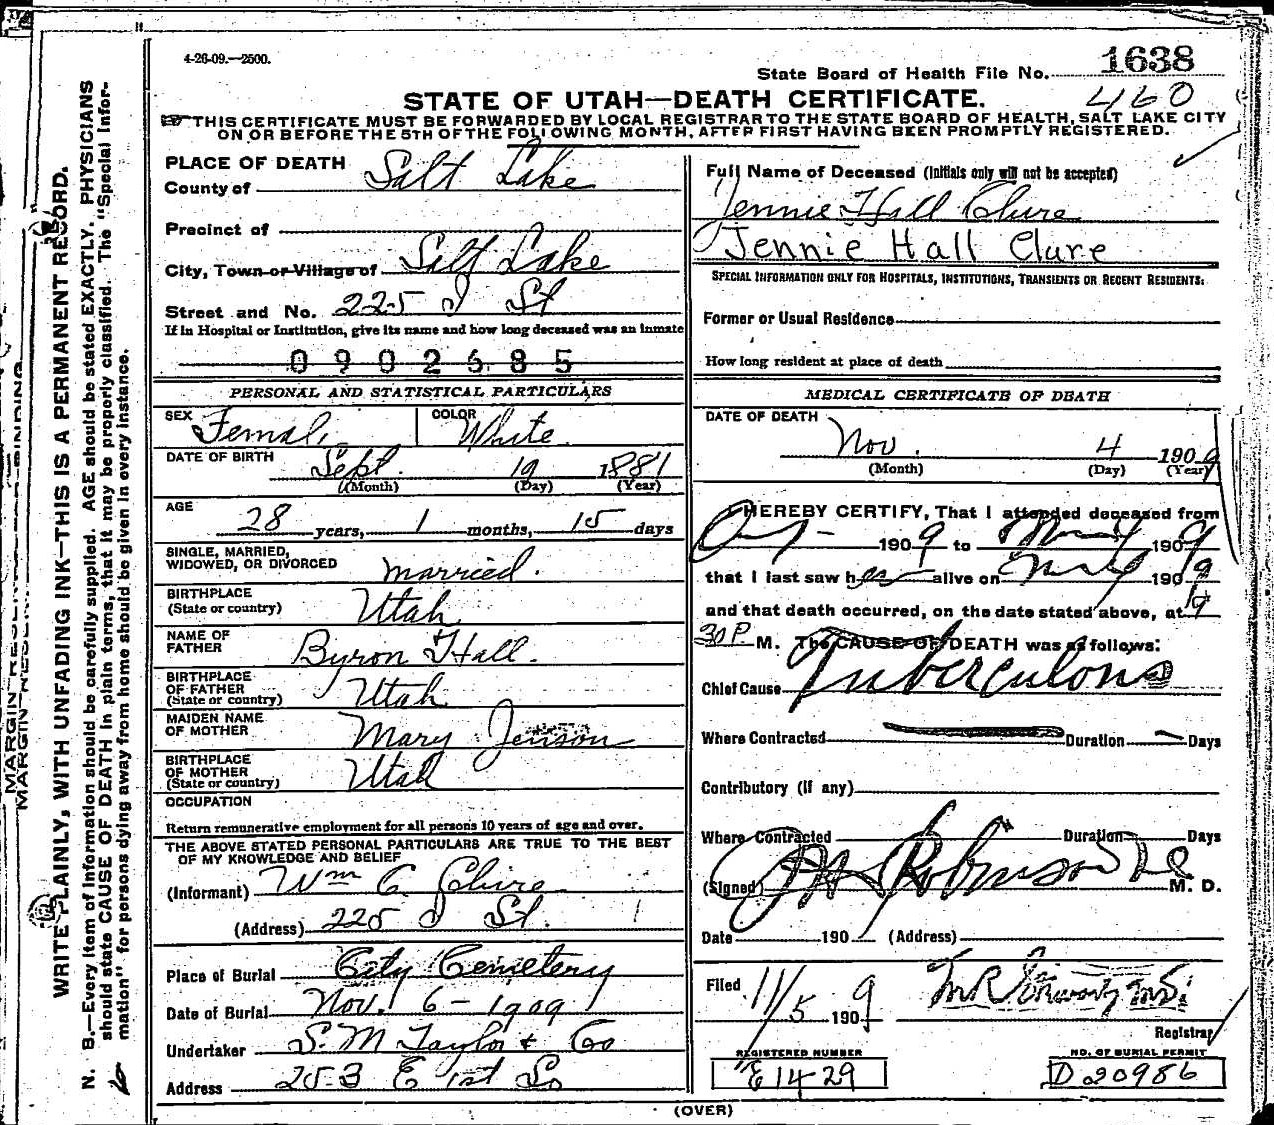 4-26-09.—2500.
State Board of Health File No. 1638
460
STATE OF UTAH—DEATH CERTIFICATE.
THIS CERTIFICATE MUST BE FORWARDED BY LOCAL REGISTRAR TO THE STATE BOARD OF HEALTH, SALT LAKE CITY
ON OR BEFORE THE 5TH OF THE FOLLOWING MONTH, AFTER FIRST HAVING BEEN PROMPTLY REGISTERED.
PLACE OF DEATH
County of Salt Lake
Precinct of
City, Town or Village of Salt Lake
Street and No. 225 J St
If in Hospital or Institution, give its name and how long deceased was an inmate
0902685
PERSONAL AND STATISTICAL PARTICULARS
SEX Female COLOR White
DATE OF BIRTH Sept. 19 1881
(Month) (Day) (Year)
AGE
28 years, 1 months, 15 days
SINGLE, MARRIED,
WIDOWED, OR DIVORCED married.
BIRTHPLACE
(State or country) Utah
NAME OF
FATHER Byron Hall.
BIRTHPLACE
OF FATHER
(State or country) Utah
MAIDEN NAME
OF MOTHER Mary Jenson
BIRTHPLACE
OF MOTHER
(State or country) Utah
OCCUPATION
Return remunerative employment for all persons 10 years of age and over.
THE ABOVE STATED PERSONAL PARTICULARS ARE TRUE TO THE BEST
OF MY KNOWLEDGE AND BELIEF
(Informant) Wm C. Clure
(Address) 225 J St.
Place of Burial City Cemetery
Date of Burial Nov. 6-1909
Undertaker S. M Taylor & Co
Address 253 E 1st So
Full Name of Deceased (Initials only will not be accepted)
Jennie Hall Clure
Jennie Hall Clure
SPECIAL INFORMATION ONLY FOR HOSPITALS, INSTITUTIONS, TRANSIENTS OR RECENT RESIDENTS:
Former or Usual Residence
How long resident at place of death
MEDICAL CERTIFICATE OF DEATH
DATE OF DEATH
Nov. 4 1909
(Month) (Day) (Year)
I HEREBY CERTIFY, That I attended deceased from
1909 to 1909
that I last saw her alive on 1909
and that death occurred, on the date stated above, at
30 P. M. The CAUSE OF DEATH was as follows:
Chief Cause Tuberculous
Where Contracted Duration Days
Contributory (if any)
Where Contracted Duration Days
(Signed) Robinson M. D.
Date 190 (Address)
Filed 11/5 1909
Registrar
REGISTERED NUMBER
E1429
NO. OF BURIAL PERMIT
D20986
(OVER)
WRITE PLAINLY, WITH UNFADING INK—THIS IS A PERMANENT RECORD.
N. B.—Every item of information should be carefully supplied. AGE should be stated EXACTLY. PHYSICIANS
should state CAUSE OF DEATH in plain terms, that it may be properly classified. The "Special Infor-
mation" for persons dying away from home should be given in every instance.